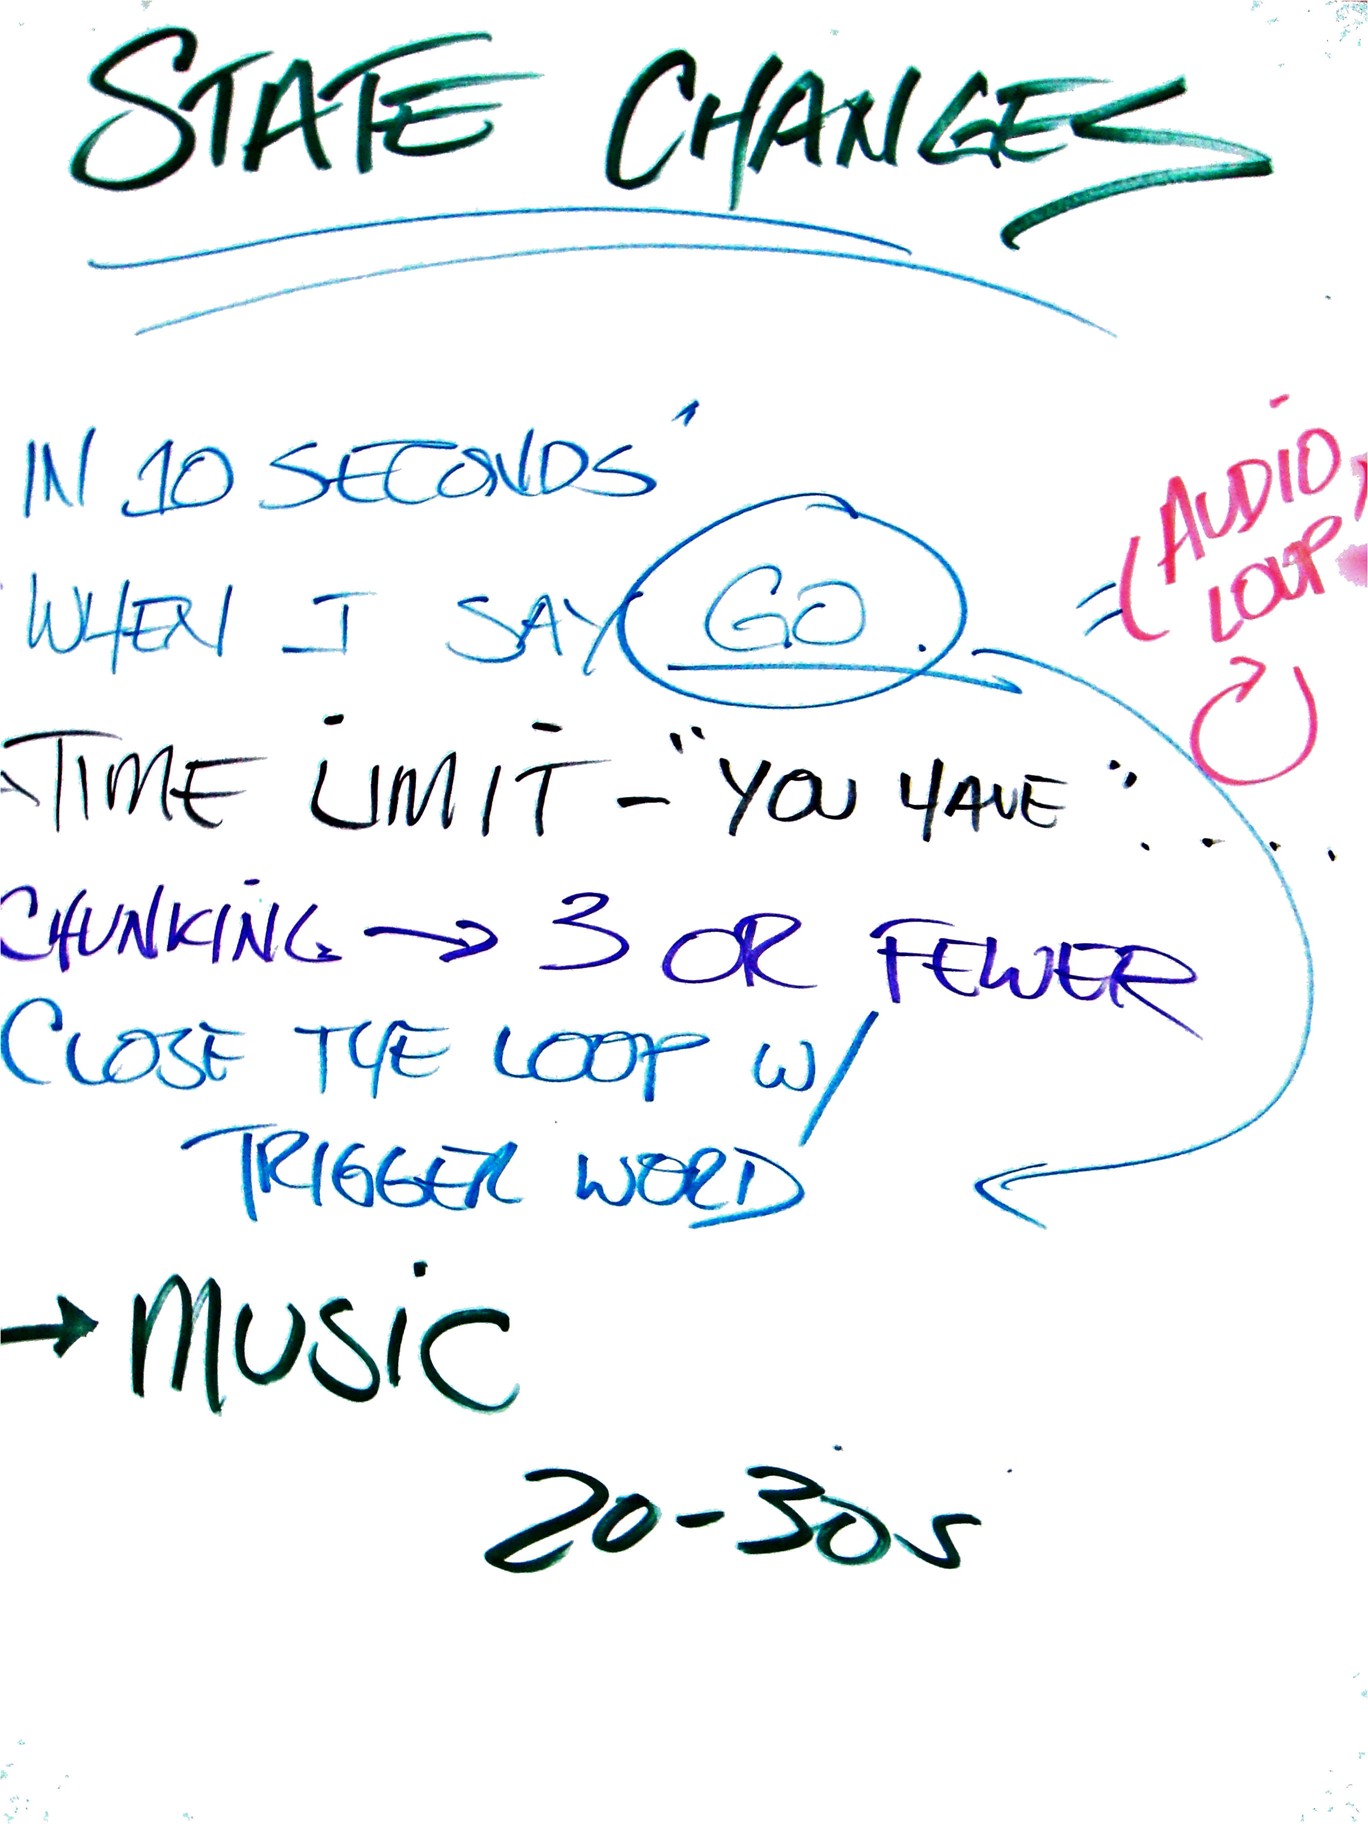 STATE CHANGES
IN 10 SECONDS"
WHEN I SAY GO.
= (AUDIO
LOOP)
TIME LIMIT - "YOU HAVE" ....
CHUNKING → 3 OR FEWER
CLOSE THE LOOP W/
TRIGGER WORD
→ MUSIC
20-30s